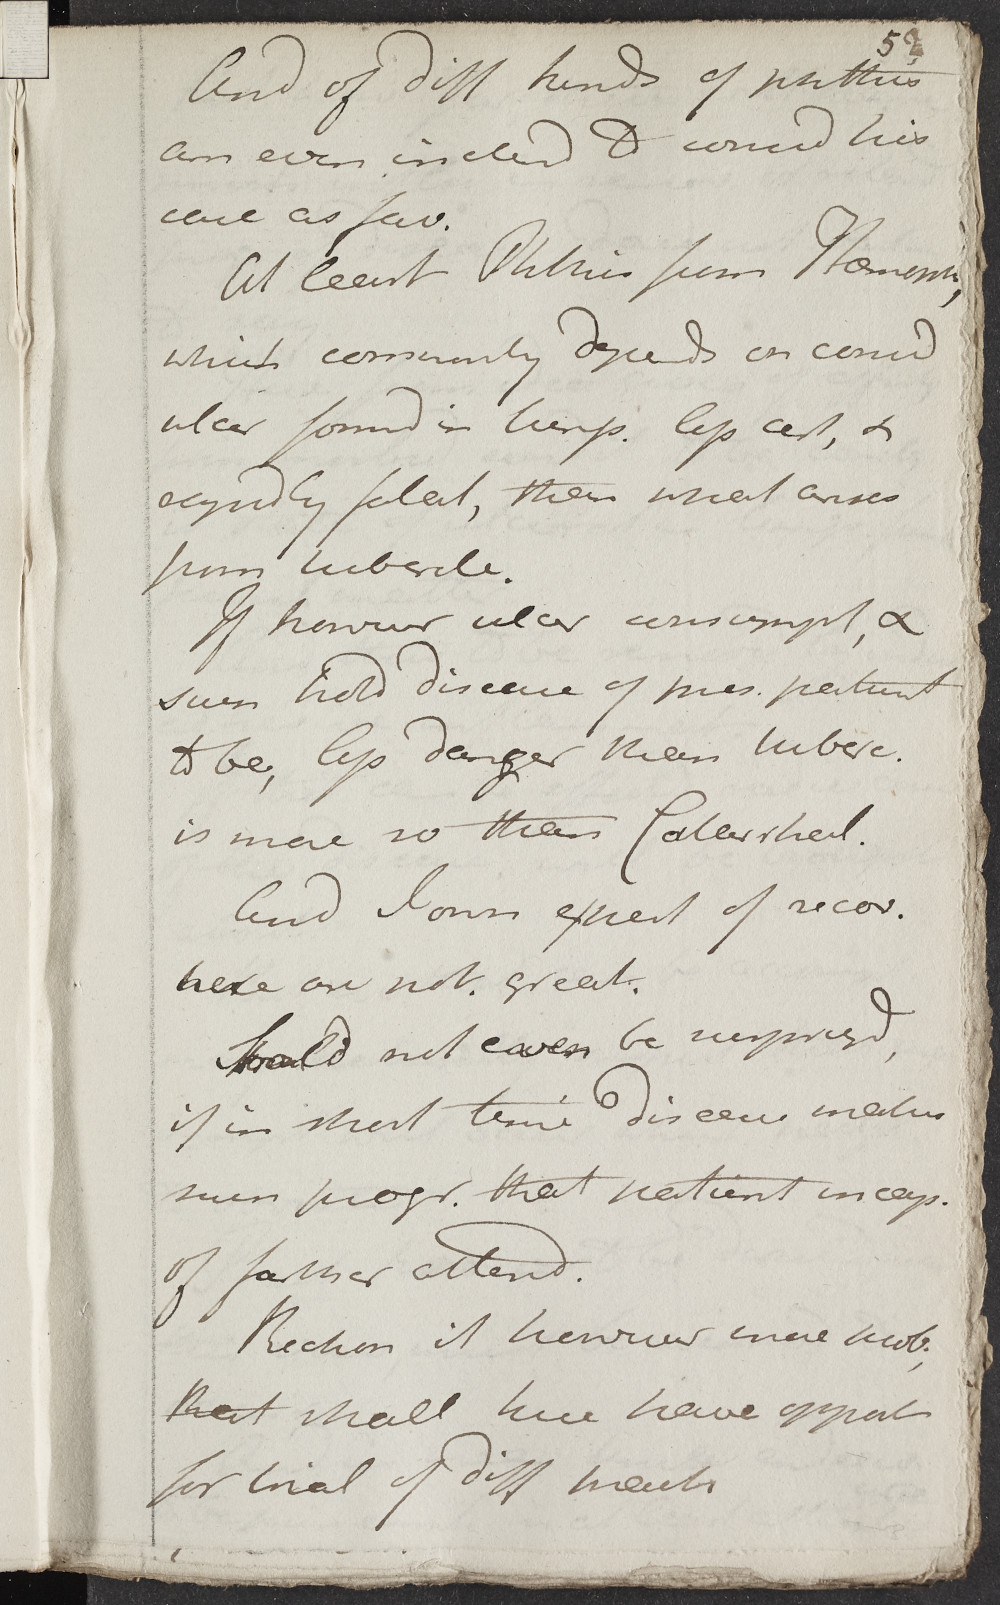 52
And of diff kinds of phthis
am even inclend to consid his
case as fav.
At least Phthisis from Hæmorrh,
which commonly depends on consid
ulcer formd in hemp. less cert, &
rapidly fatal, than what arises
from tubercle.
If however ulcer consumpt, &
such hold disease of pres. patient
to be, less danger than tuberc.
is more so than Catarrhal.
And I own expect of recov.
here are not. great.
Should not even be surprizd,
if in short time disease makes
such progr. that patient incap.
of farther attend.
Reckon it however more prob,
that shall here have opport
for trial of diff meds